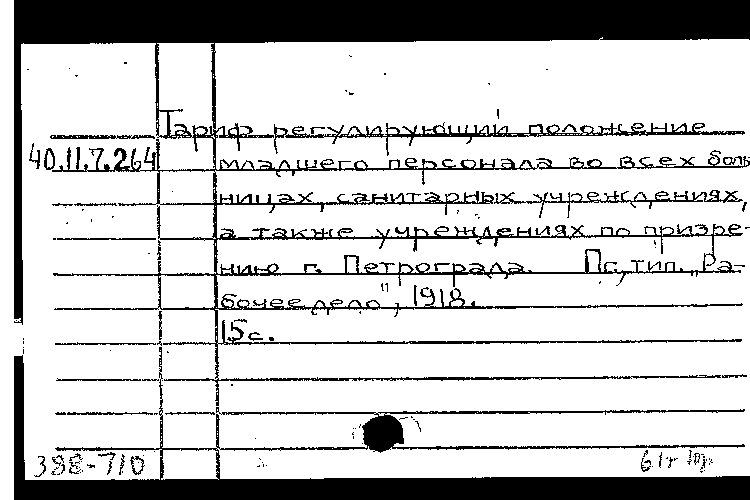 Тариф регулирующий положение
40.11.7.264 младшего персонала во всех боль
ницах, санитарных учреждениях,
а также учреждениях по призре-
нию г. Петрограда. Пг., тип. „Ра-
бочее дело", 1918.
15 с.
388-710 61г